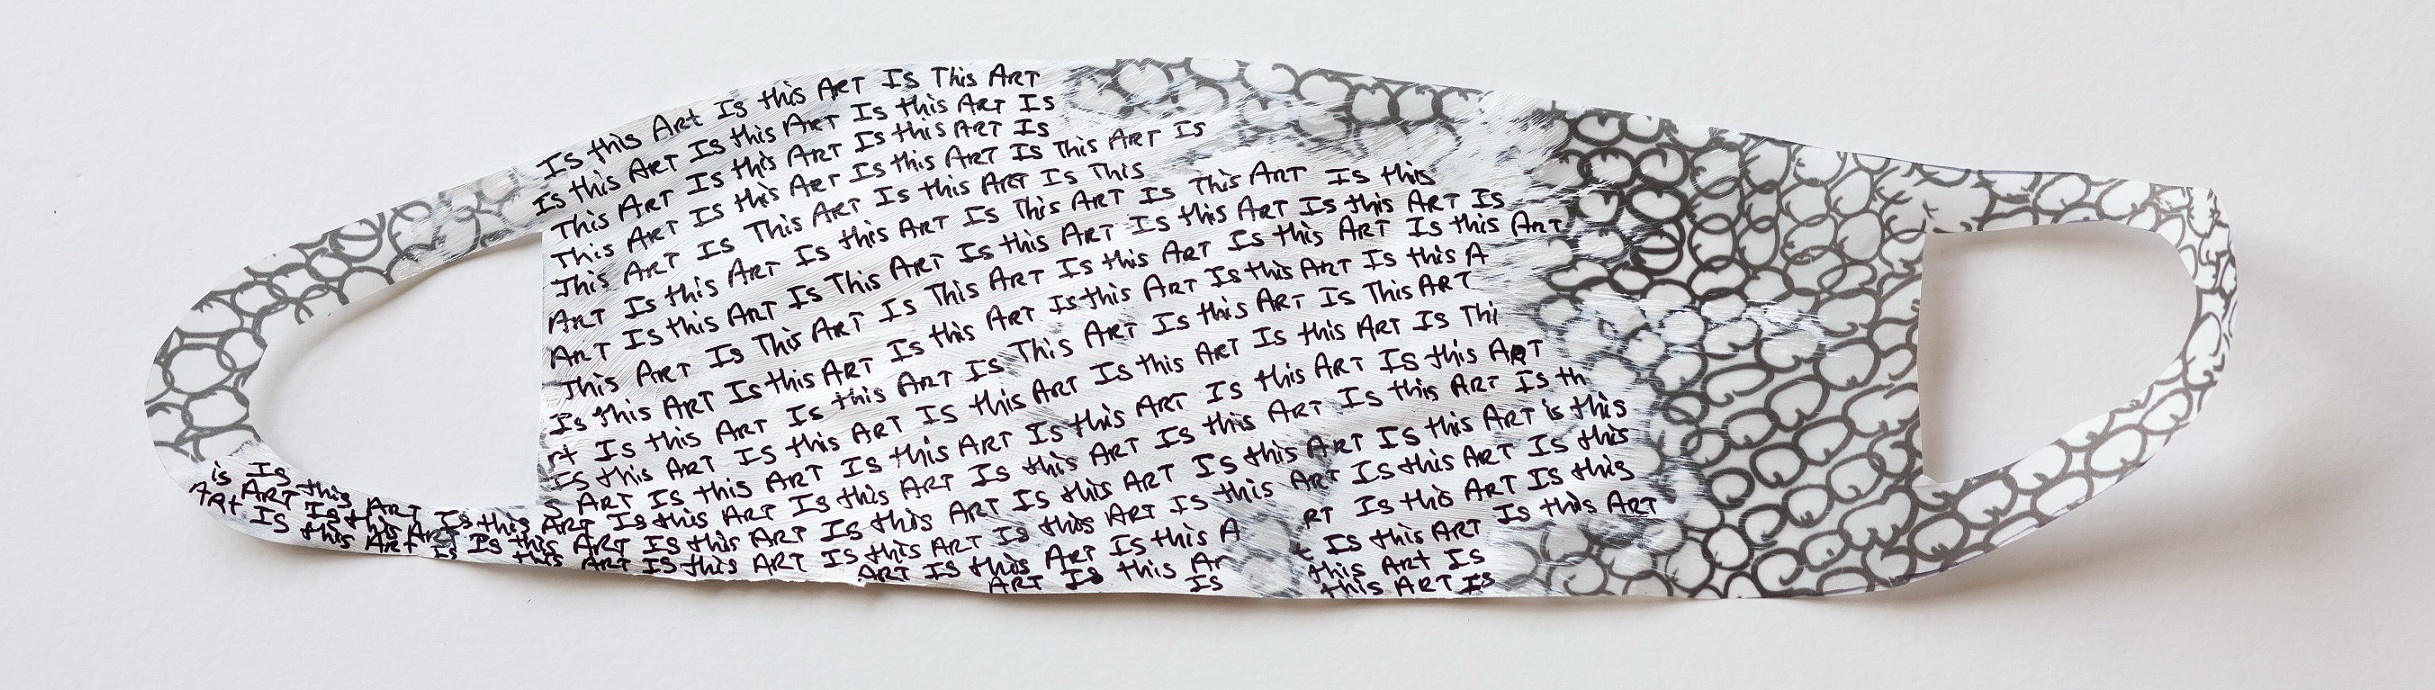 Is this Art Is this ART Is This ART
Is this ART Is this ART Is this ART Is
This ART Is this ART Is this ART Is
This ART Is this ART Is this ART Is This ART Is
This ART Is This ART Is this ART Is This
ART Is this ART Is this ART Is This ART Is This ART Is this
ART Is this ART Is This ART Is this ART Is this ART Is this ART Is
This ART Is This ART Is This ART Is this ART Is this ART Is this ART
Is this ART Is this ART Is this ART Is this ART Is this ART Is this A
rt Is this ART Is this ART Is This ART Is this ART Is This ART
Is this ART Is this ART Is this ART Is this ART Is this ART Is Thi
S ART Is this ART Is this ART Is this ART Is this ART Is this ART
is Is this ART Is this ART Is this ART Is this ART Is this ART Is this ART Is th
ART ART Is this ART Is this ART Is this ART Is this ART Is this ART Is this ART is this
Art Is this ART Is this ART Is this ART Is this ART Is this ART Is this ART Is this
ART Is this ART Is this A RT Is this ART Is this
ART Is this Ar t Is this ART Is this ART
Is this ART Is
this ART Is